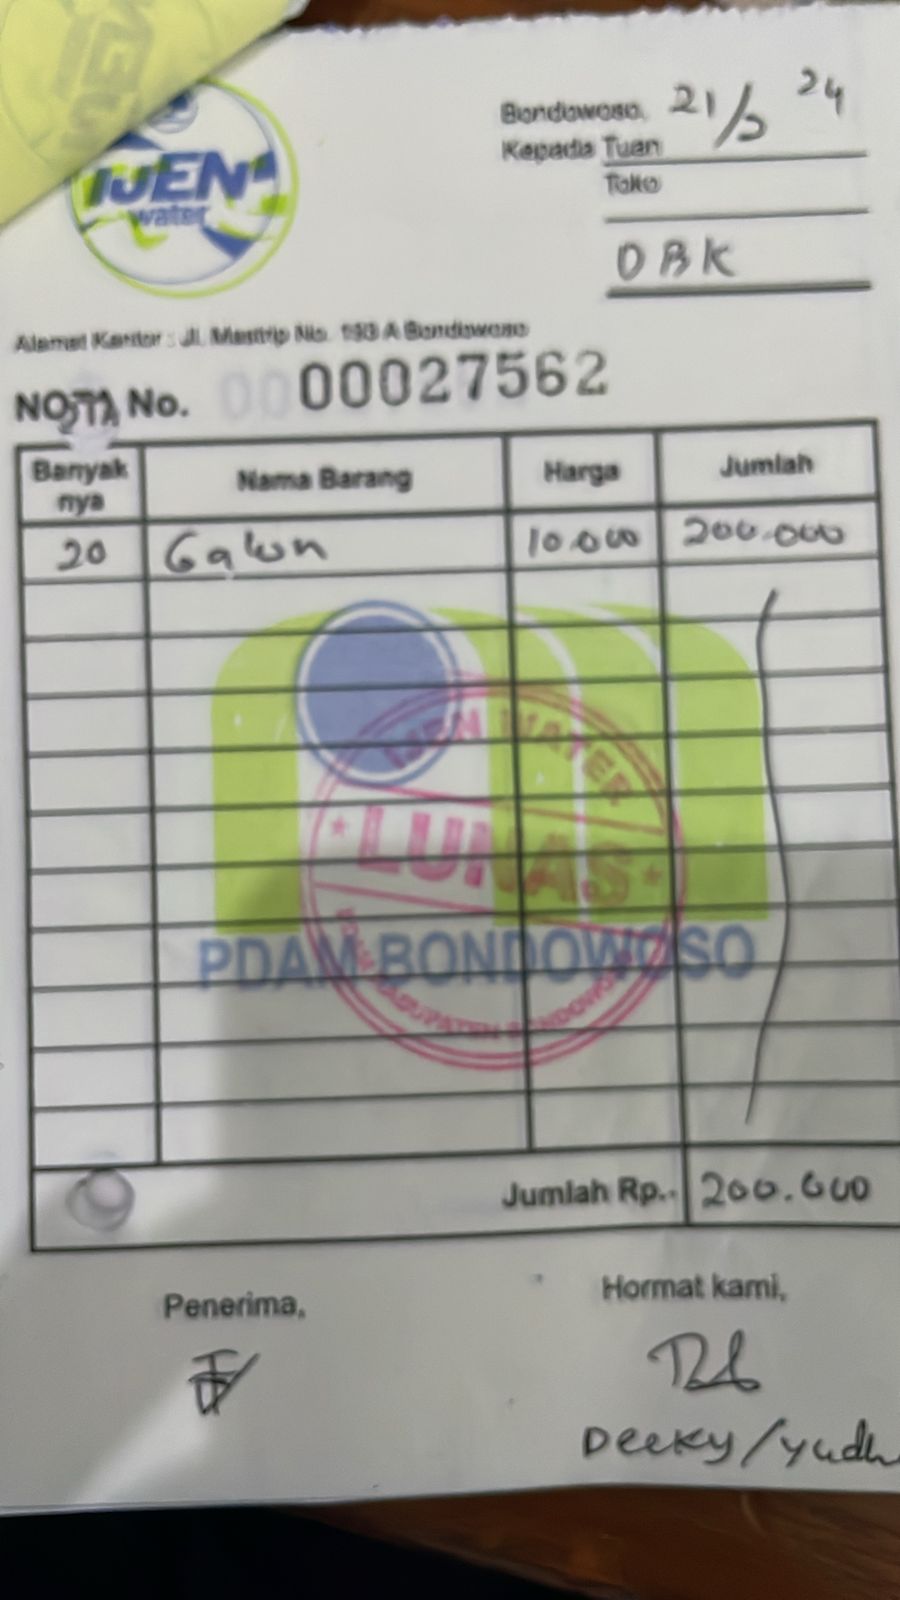 IJEN
water
Bondowoso, 21/5 24
Kepada Tuan
Toko
DBK
Alamat Kantor : Jl. Mastrip No. 193 A Bondowoso
NOTA No. 00027562
Banyak nya Nama Barang Harga Jumlah
20 Galon 10.000 200.000
IJEN WATER
LUNAS
PDAM KABUPATEN BONDOWOSO
PDAM BONDOWOSO
Jumlah Rp.. 200.000
Penerima, Hormat kami,
Deeky/Yudh